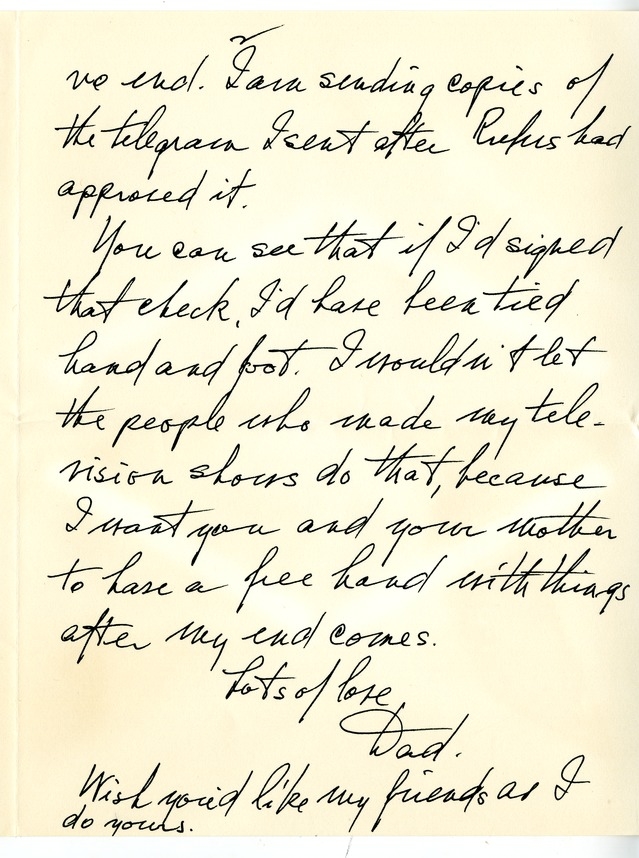 ve end. I am sending copies of
the telegram I sent after Rufus had
approved it.
You can see that if I'd signed
that check, I'd have been tied
hand and foot. I wouldn't let
the people who made my tele-
vision shows do that, because
I want you and your mother
to have a free hand with things
after my end comes.
Lots of love,
Dad.
Wish you'd like my friends as I
do yours.